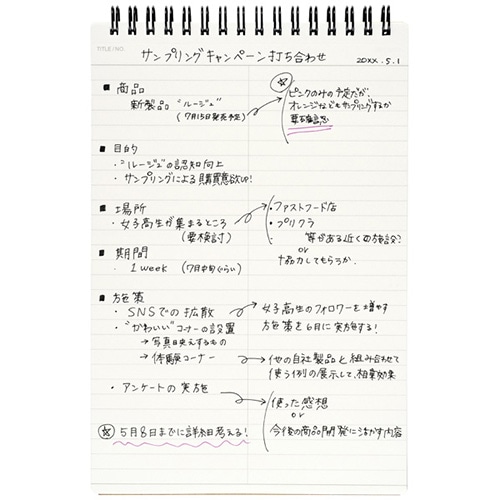 TITLE/NO.
サンプリングキャンペーン打ち合わせ 20XX.5.1
■ 商品
新製品 "ルージュ"
(7月15日発売予定)
☆
ピンクのみの予定だが、
オレンジなどもサンプリングするか
要確認
■ 目的
・"ルージュ"の認知向上
・サンプリングによる購買意欲UP!
■ 場所
・女子高生が集まるところ
(要検討)
・ファストフード店
・プリクラ
等がある近くの施設?
or
協力してもらうか.
■ 期間
・1 week (7月中旬ぐらい)
■ 方策
・SNSでの拡散
女子高生のフォロワーを増やす
方策を6月に実施する!
・"かわいい"コーナーの設置
→ 写真映えするもの
→ 体験コーナー
他の自社製品と組み合わせて
使う例の展示して、相乗効果
・アンケートの実施
使った感想
or
今後の商品開発に活かす内容
☆ 5月8日までに詳細考える!